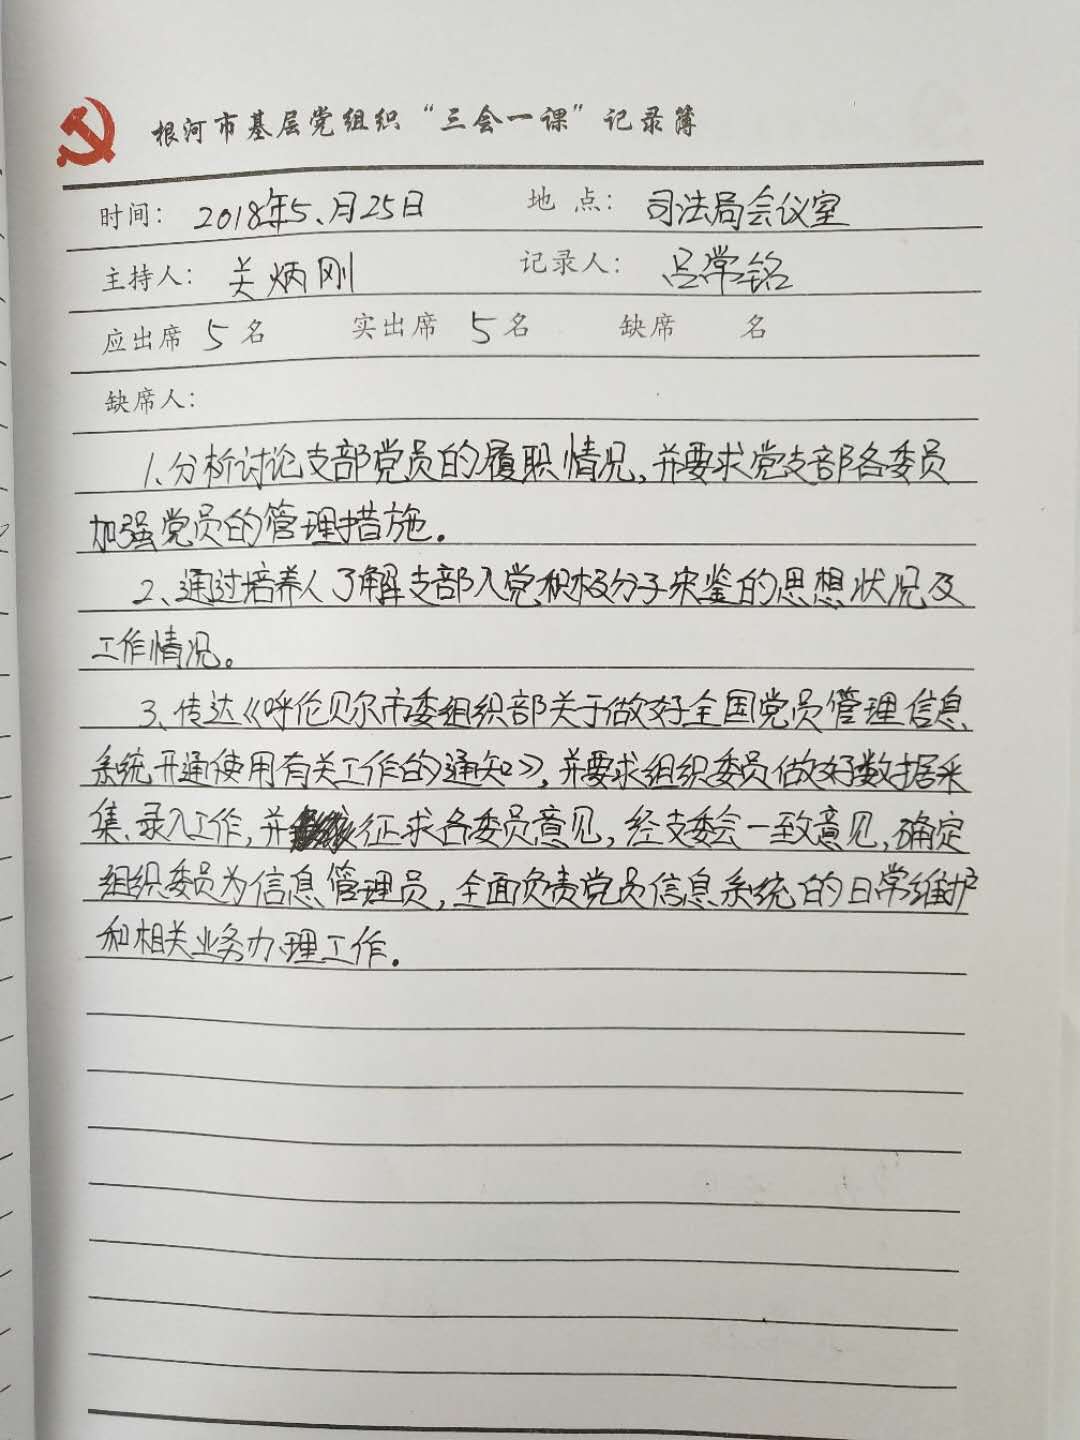 根河市基层党组织“三会一课”记录簿
时间：2018年5、月25日 地点：司法局会议室
主持人：关炳刚 记录人：吕常铭
应出席 5 名 实出席 5 名 缺席 名
缺席人：
1、分析讨论支部党员的履职情况，并要求党支部各委员
加强党员的管理措施.
2、通过培养人了解支部入党积极分子宋鉴的思想状况及
工作情况。
3、传达《呼伦贝尔市委组织部关于做好全国党员管理信息
系统开通使用有关工作的通知》，并要求组织委员做好数据采
集、录入工作，并征求各委员意见，经支委会一致意见，确定
组织委员为信息管理员，全面负责党员信息系统的日常维护
和相关业务办理工作.